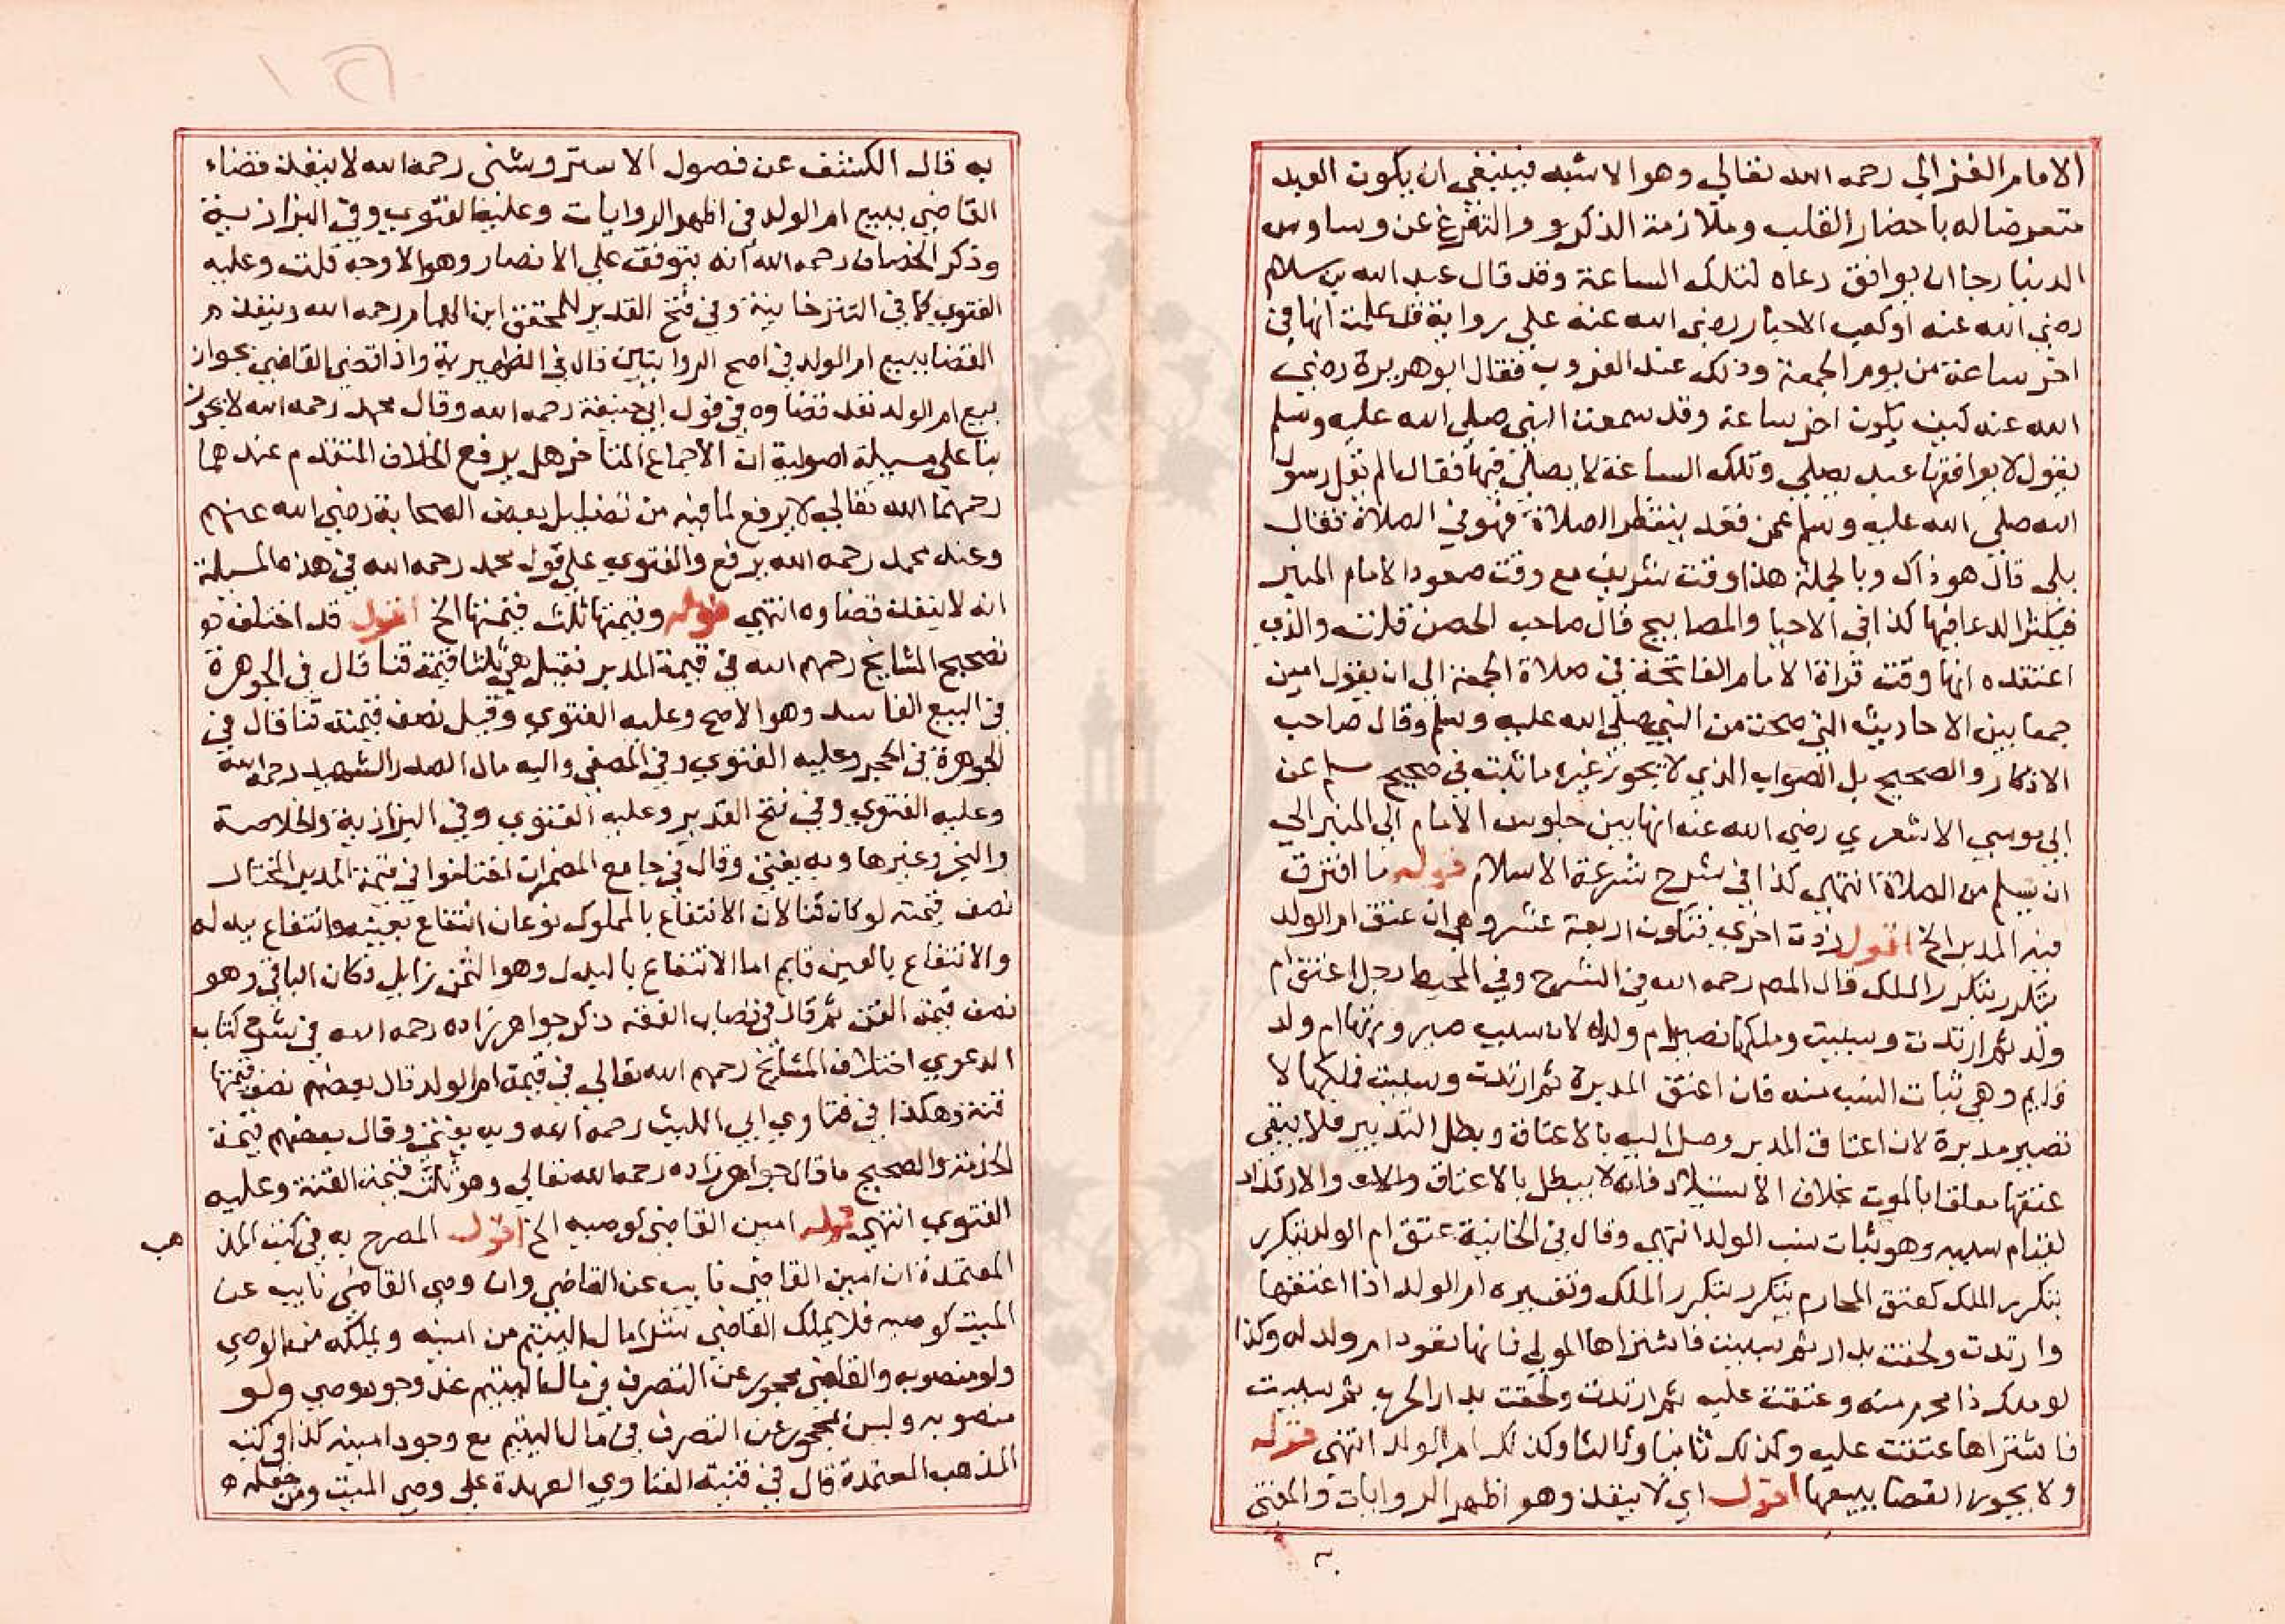 الامام الغزالي رحمه الله تعالي وهو الاشبه فينبغي ان يكون العبد
متعرضا له باحضار القلب وملازمة الذكر والتفرغ عن وساوس
الدنيا رجا ان يوافق دعاه لتلك الساعة وقد قال عبد الله بن سلام
رضي الله عنه او كعب الاحبار رضي الله عنه علي رواية قد علمت انها في
اخر ساعة من يوم الجمعة وذلك عند الغروب فقال ابو هريرة رضي
الله عنه كيف يكون اخر ساعة وقد سمعت النبي صلي الله عليه وسلم
يقول لا يوافقها عبد يصلي وتلك الساعة لا يصلي فيها فقال الم تقل رسول
الله صلي الله عليه وسلم عمن قعد ينتظر الصلاة فهو في الصلاة فقال
بلي قال هو ذاك وبالجملة هذا وقت شريف مع وقت صعود الامام المنبر
فيكثر الدعا فيها كذا في الاحيا والمصابيح قال صاحب الحصن قلت والذي
اعتقده انها وقت قراة الامام الفاتحة في صلاة الجمعة الي ان يقول امين
جمعا بين الاحاديث التي صحت من النبي صلي الله عليه وسلم وقال صاحب
الاذكار والصحيح بل الصواب الذي لا يجوز غيره ما ثبت في صحيح مسلم عن
ابي موسي الاشعري رضي الله عنه انها بين جلوس الامام الي المنبر الي
ان يسلم من الصلاة انتهي كذا في شرح شرعة الاسلام قوله ما افترق
فيه المدبر الخ اقول زدت اخري فتكون اربعة عشر وهي ان عتق ام الولد
يتكرر بتكرر الملك قال المصـ رحمه الله في الشرح وفي المحيط رجل اعتق ام
ولد ثم ارتدت وسبيت وملكها تصير ام ولده لان سبب صيرورتها ام ولد
قايم وهي ثبات النسب منه فان اعتق المدبرة ثم ارتدت وسبيت فملكها لا
تصير مدبرة لان اعتاق المدبر وصل اليه بالاعتاق وبطل التدبير فلا يبقي
عتقها معلقا بالموت بخلاف الاستيلاد فانه لا يبطل بالاعتاق والارتداد
لقيام سببه وهو ثبات نسب الولد انتهي وقال في الخانية عتق ام الولد يتكرر
بتكرر الملك كعتق المحارم يتكرر بتكرر الملك وتفسيره ام الولد اذا اعتقها
وارتدت ولحقت بدار ثم سبيت فاشتراها المولي فانها تعود ام ولد له وكذا
لو ملك ذا محرم منه وعتقت عليه ثم ارتدت ولحقت بدار الحرب ثم سبيت
فاشتراها عتقت عليه وكذلك ثانيا وثالثا وكذلك ام الولد انتهي قوله
ولا يجوز القضا ببيعها اقول اي لا ينفذ وهو اظهر الروايات والمفتي
به
به قال الكشف عن فصول الاستروشني رحمه الله لا ينفذ قضاء
القاضي ببيع ام الولد في اظهر الروايات وعليه الفتوي وفي البزازية
وذكر الخصاف رحمه الله انه يتوقف علي الانصار وهو الاوجه قلت وعليه
الفتوي كما في التترخانية وفي فتح القدير للمحقق ابن الهمام رحمه الله وينفذ
القضا ببيع ام الولد في اصح الروايتين قال في الظهيرية واذا قضي القاضي بجواز
بيع ام الولد نفذ قضاوه في قول ابي حنيفة رحمه الله وقال محمد رحمه الله لا يجوز
بنا علي مسيلة اصولية ان الاجماع المتاخر هل يرفع الخلاف المتقدم عندهما
رحمهما الله تعالي لا يرفع لما فيه من تضليل بعض الصحابة رضي الله عنهم
وعند محمد رحمه الله يرفع والفتوي علي قول محمد رحمه الله في هذه المسيلة
انه لا ينفذ قضاوه انتهي قوله وقيمتها ثلث قيمتها الخ اقول قد اختلف
تصحيح المشايخ رحمهم الله في قيمة المدبر فقيل هي ثلثا قيمته قنا قال في الجوهرة
في البيع الفاسد وهو الاصح وعليه الفتوي وقيل نصف قيمته قنا قال في
الجوهرة في الحجر وعليه الفتوي وفي المصفي واليه مال الصدر الشهيد رحمه الله
وعليه الفتوي وفي فتح القدير وعليه الفتوي وفي البزازية والخلاصة
والبحر وغيرها وبه يفتي وقال في جامع المضمرات اختلفوا في قيمة المدبر المختار
نصف قيمته لو كان قنا لان الانتفاع بالمملوك نوعان انتفاع بعينه وانتفاع ببدله
والانتفاع بالعين قايم اما الانتفاع بالبدل وهو الثمن زايل فكان الباقي وهو
نصف قيمة القن ثم قال في نصاب الفقه ذكر جواهر زاده رحمه الله في شرح كتاب
الدعوي اختلاف المشايخ رحمهم الله تعالي في قيمة ام الولد قال بعضهم نصف قيمتها
قنة وهكذا في فتاوي ابي الليث رحمه الله وبه يفتي وقال بعضهم قيمة
الخدمة والصحيح ما قال جواهر زاده رحمه الله تعالي وهو ثلث قيمة القنة وعليه
الفتوي انتهي قوله امين القاضي كوصيه الخ اقول المصرح به في كتب المذ
هب
المعتمدة ان امين القاضي نايب عن القاضي وان وصي القاضي نايب عن
الميت كوصيه فلا يملك القاضي شرا مال اليتيم من امينه ويملكه من الوصي
ولو منصوبه والقاضي محجور عن التصرف في مال اليتيم عند وجود وصي ولو
منصوبه وليس بمحجور عن التصرف في مال اليتيم مع وجود امينه كذا في كتب
المذهب المعتمدة قال في قنية الفتاوي العهدة علي وصي الميت ومن جعله